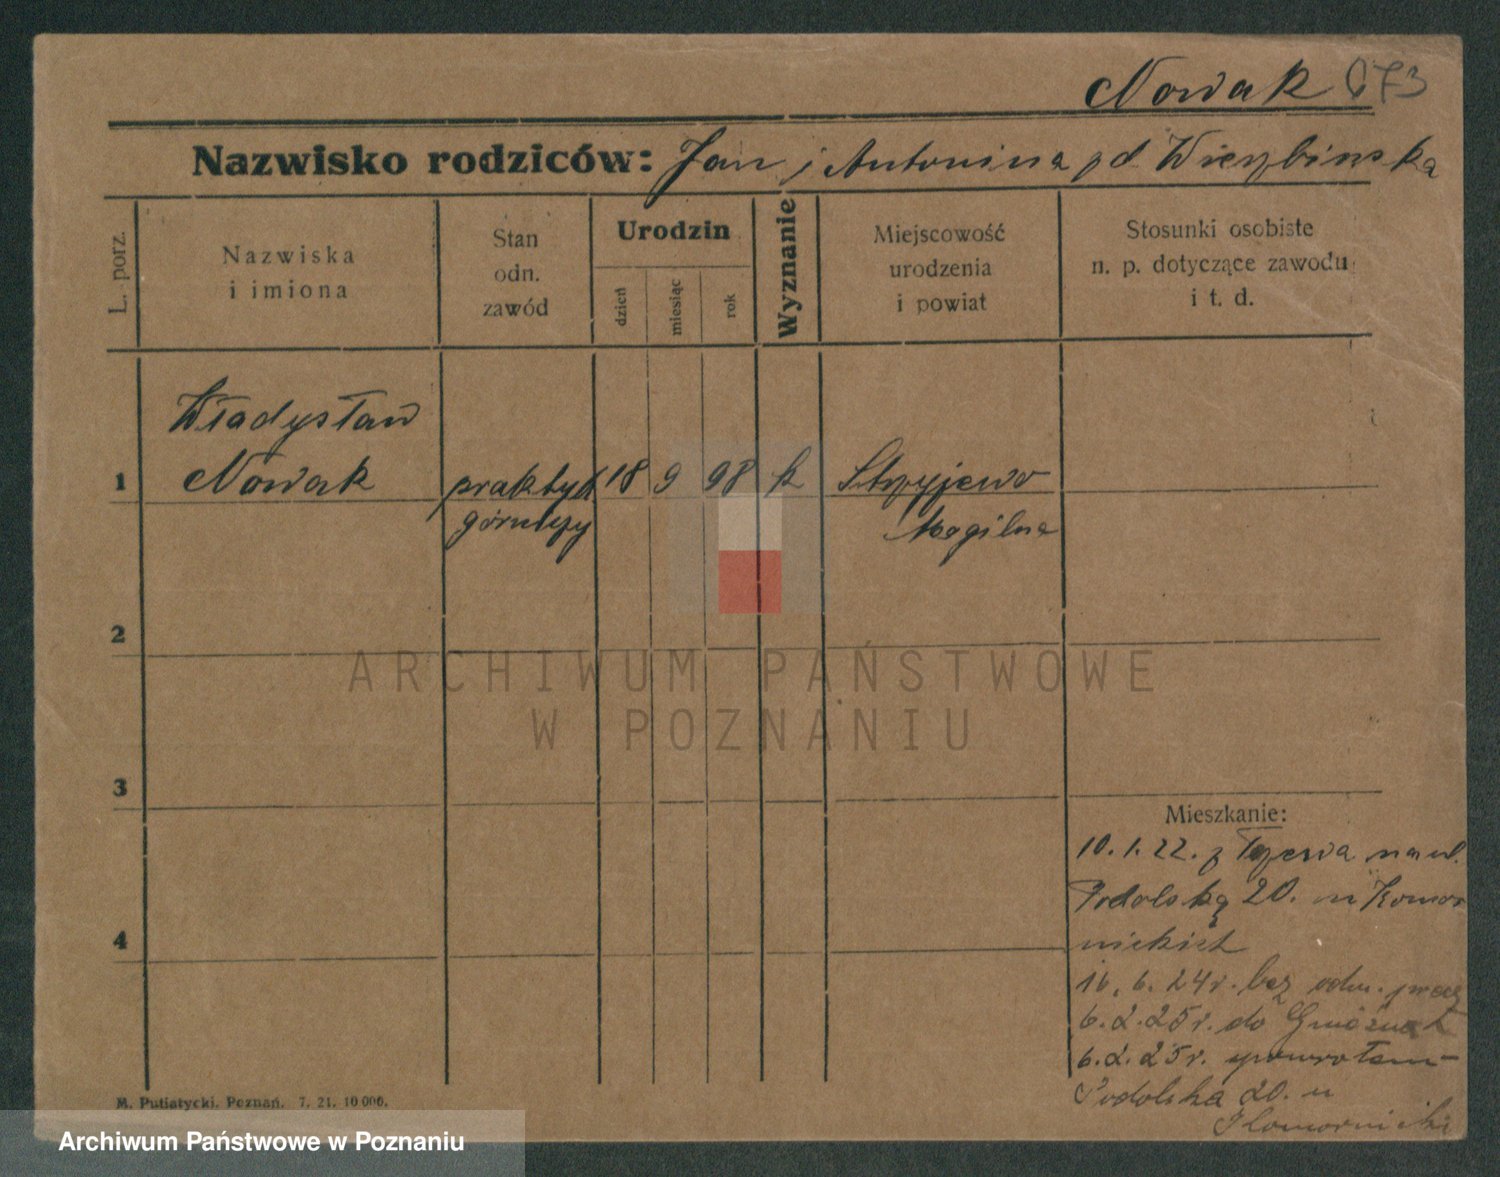 Nowak 073
Nazwisko rodziców: Jan i Antonina zd Wierzbinska
L. porz.
Nazwiska
i imiona
Stan
odn.
zawód
Urodzin
dzień
miesiąc
rok
Wyznanie
Miejscowość
urodzenia
i powiat
Stosunki osobiste
n. p. dotyczące zawodu
i t. d.
Władysław
1 Nowak praktyk 18 9 98 k Stryjewo
górniczy Mogilno
2
3
4
Mieszkanie:
10.1.22. z Tczewa na ul.
Podolską 20. u Komor
nickich
16.6.24r. bez odm.
6.2.25r. do
6.2.25r. spowrotem
Podolska 20. u
Komornicki
M. Putiatycki. Poznań. 7. 21. 10 000.
ARCHIWUM PAŃSTWOWE
W POZNANIU
Archiwum Państwowe w Poznaniu